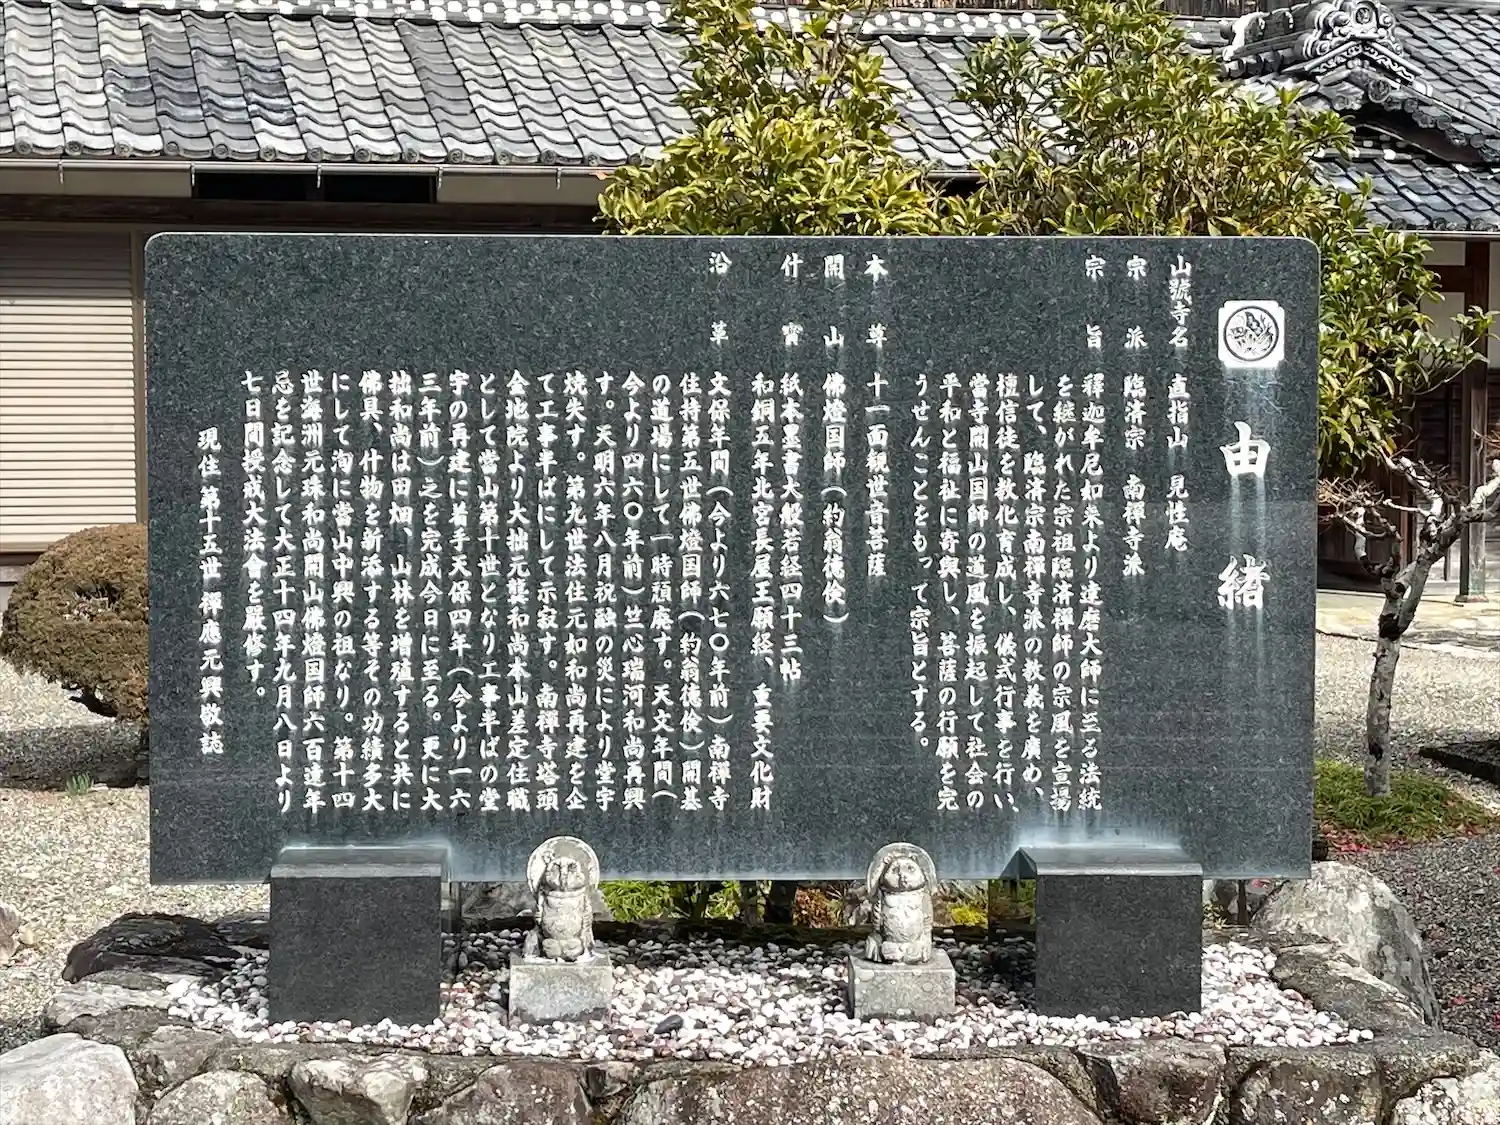 由緒
山號寺名 直指山 見性庵
宗派 臨済宗 南禅寺派
宗旨 釋迦牟尼如来より達磨大師に至る法統
を継がれた宗祖臨済禅師の宗風を宣揚
して、臨済宗南禅寺派の教義を廣め、
檀信徒を教化育成し、儀式行事を行い、
當寺開山国師の道風を振起して社会の
平和と福祉に寄與し、菩薩の行願を完
うせんことをもって宗旨とする。
本尊 十一面観世音菩薩
開山 佛燈国師（約翁徳倹）
什寶 紙本墨書大般若経四十三帖
和銅五年北宮長屋王願経、重要文化財
沿革 文保年間（今より六七〇年前）南禅寺
住持第五世佛燈国師（約翁徳倹）開基
の道場にして一時頽廃す。天文年間（
今より四六〇年前）竺心瑞河和尚再興
す。天明六年八月祝融の災により堂宇
焼失す。第九世法住元如和尚再建を企
て工事半ばにして示寂す。南禅寺塔頭
金地院より大拙元龔和尚本山差定住職
として當山第十世となり工事半ばの堂
宇の再建に着手天保四年（今より一六
三年前）之を完成今日に至る。更に大
拙和尚は田畑、山林を増殖すると共に
佛具、什物を新添する等その功績多大
にして洵に當山中興の祖なり。第十四
世海洲元珠和尚開山佛燈国師六百遠年
忌を記念して大正十四年九月八日より
七日間授戒大法會を厳修す。
現住第十五世 禅應元興敬誌